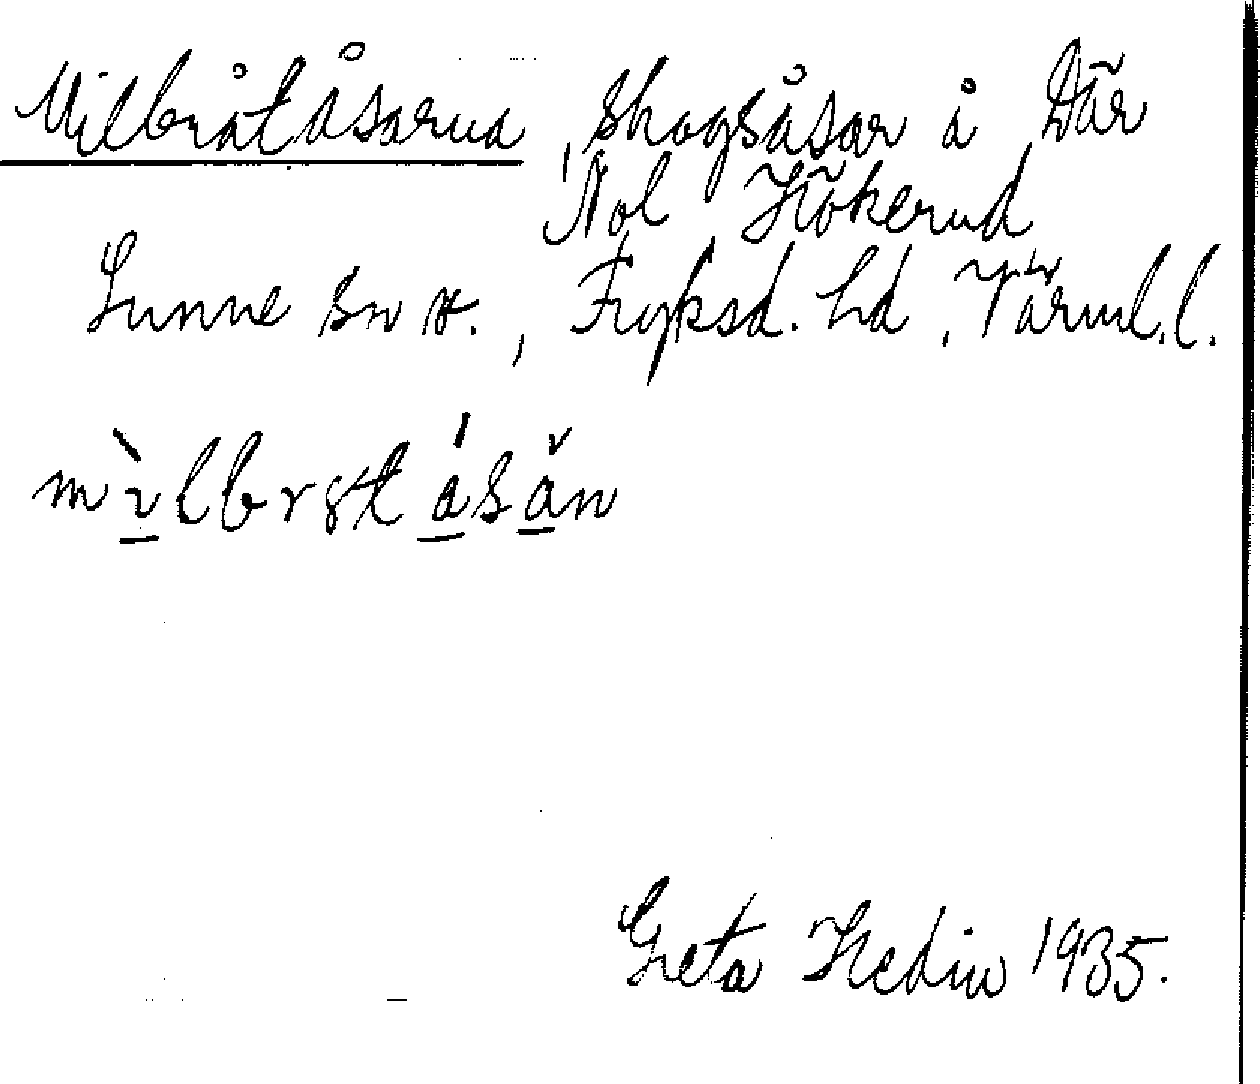 Milbråtåsarna, skogsåsar å Där
Nol Hökerud
Sunne sn v., Fryksd. hd, Värml.l.
mìlbrɞt ásǎn
Greta Hedin 1935.